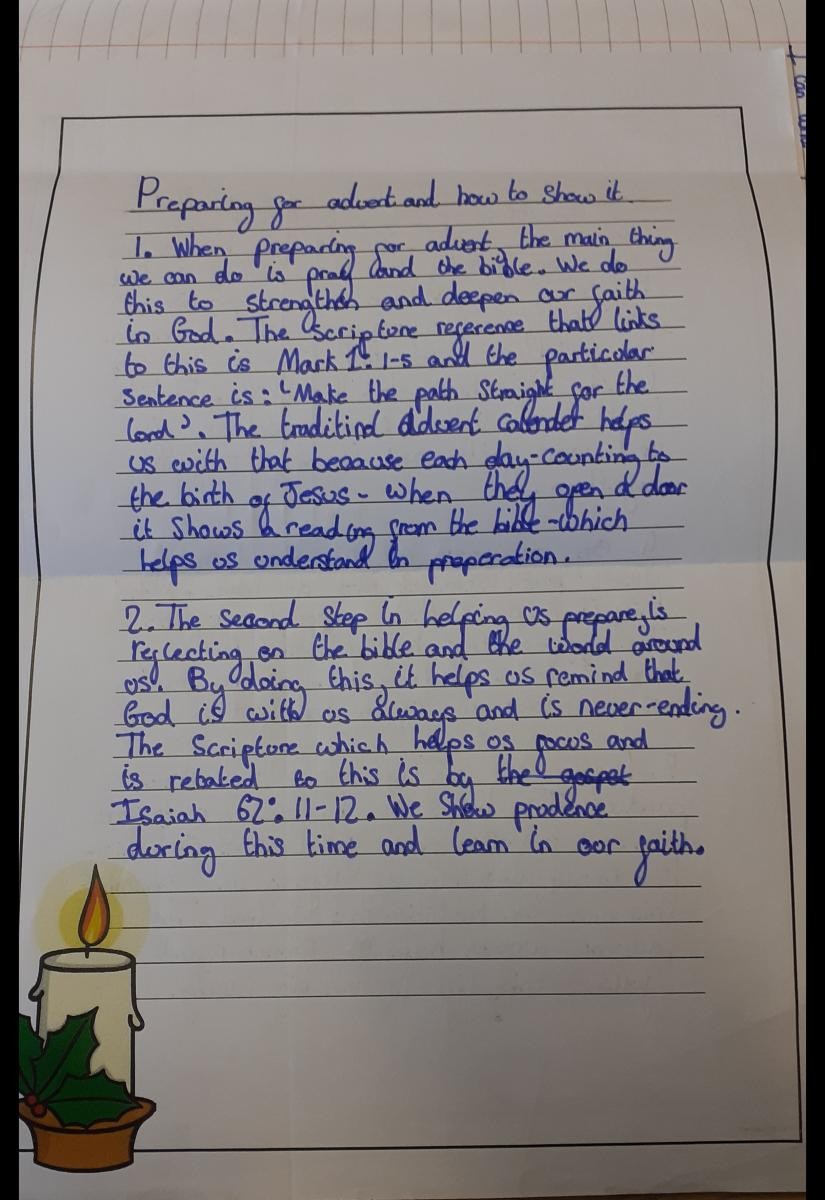 Preparing for advent and how to show it.
1. When preparing for advent, the main thing
we can do is pray and the bible. We do
this to strengthen and deepen our faith
in God. The scripture reference that links
to this is Mark 1: 1-5 and the particular
sentence is: 'Make the path straight for the
lord'. The traditind advent calender helps
us with that because each day-counting to
the birth of Jesus - when they open a door
it shows a reading from the bible - which
helps us understand in preperation.
2. The second step in helping us prepare, is
reflecting on the bible and the world around
us. By doing this, it helps us remind that
God is with us always and is never-ending.
The Scripture which helps us focus and
is rebated to this is by the gospel
Isaiah 62: 11-12. We show prudence
during this time and learn in our faith.